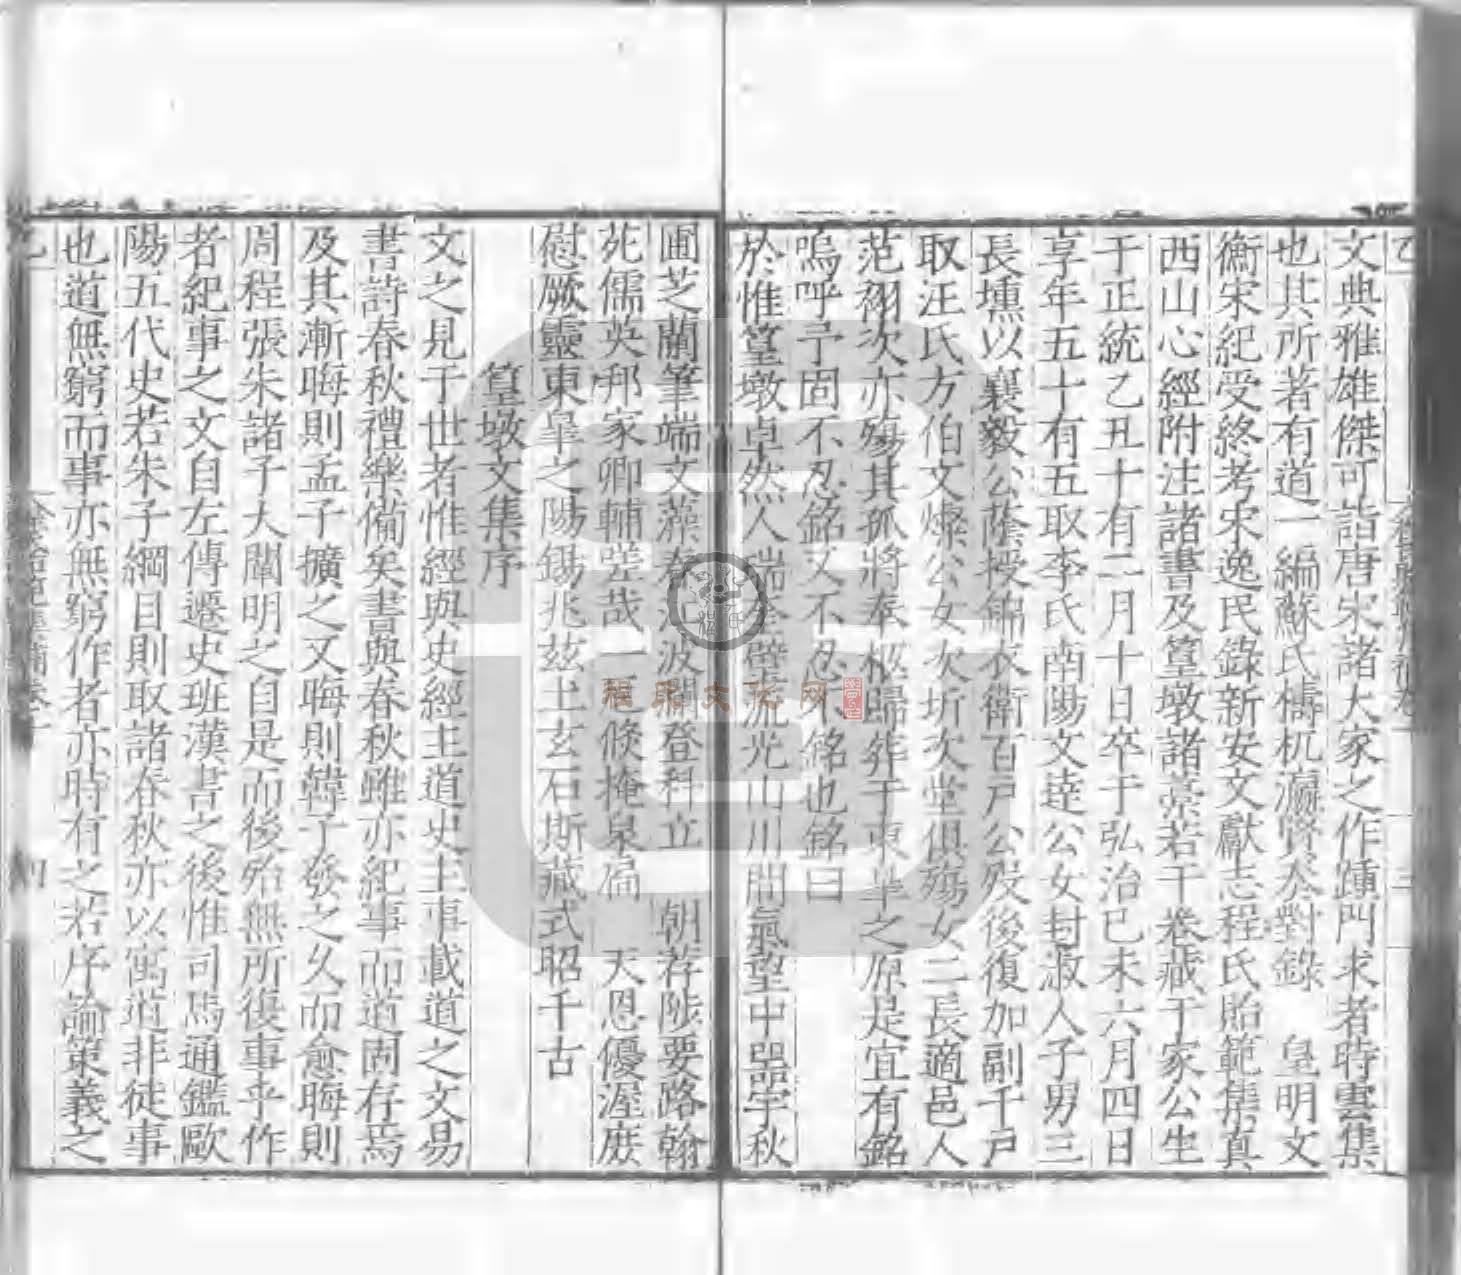 文典雅雄傑可詣唐宋諸大家之作踵門求者時雲集
也其所著有道一編蘇氏檮杌瀛賢奏對錄 皇明文
衡宋紀受終考宋逸民錄新安文獻志程氏貽範集真
西山心經附注諸書及篁墩諸藁若干卷藏于家公生
于正統乙丑十有二月十日卒于弘治己未六月四日
享年五十有五取李氏南陽文達公女封淑人子男三
長壎以襄毅公蔭授錦衣衛百戶公歿後復加副千戶
取汪氏方伯文燦公女次圻次堂俱殤女二長適邑人
范翎次亦殤其孤將奉柩歸葬于東皐之原是宜有銘
嗚呼予固不忍銘又不忍不銘也銘曰
於惟篁墩卓然人瑞奎壁流光山川間氣望中器宇秋
圃芝蘭筆端文藻春江波瀾登科立 朝荐陟要路翰
死儒英邦家卿輔嗟哉一疾倏掩泉扃 天恩優渥庶
慰厥靈東皐之陽錫兆茲土玄石斯藏式昭千古
篁墩文集序
文之見于世者惟經與史經主道史主事載道之文易
書詩春秋禮樂備矣書與春秋雖亦紀事而道固存焉
及其漸晦則孟子擴之又晦則韓子發之久而愈晦則
周程張朱諸子大闡明之自是而後殆無所復事乎作
者紀事之文自左傳遷史班漢書之後惟司馬通鑑歐
陽五代史若朱子綱目則取諸春秋亦以寓道非徒事
也道無窮而事亦無窮作者亦時有之若序論策義之
程氏文化网